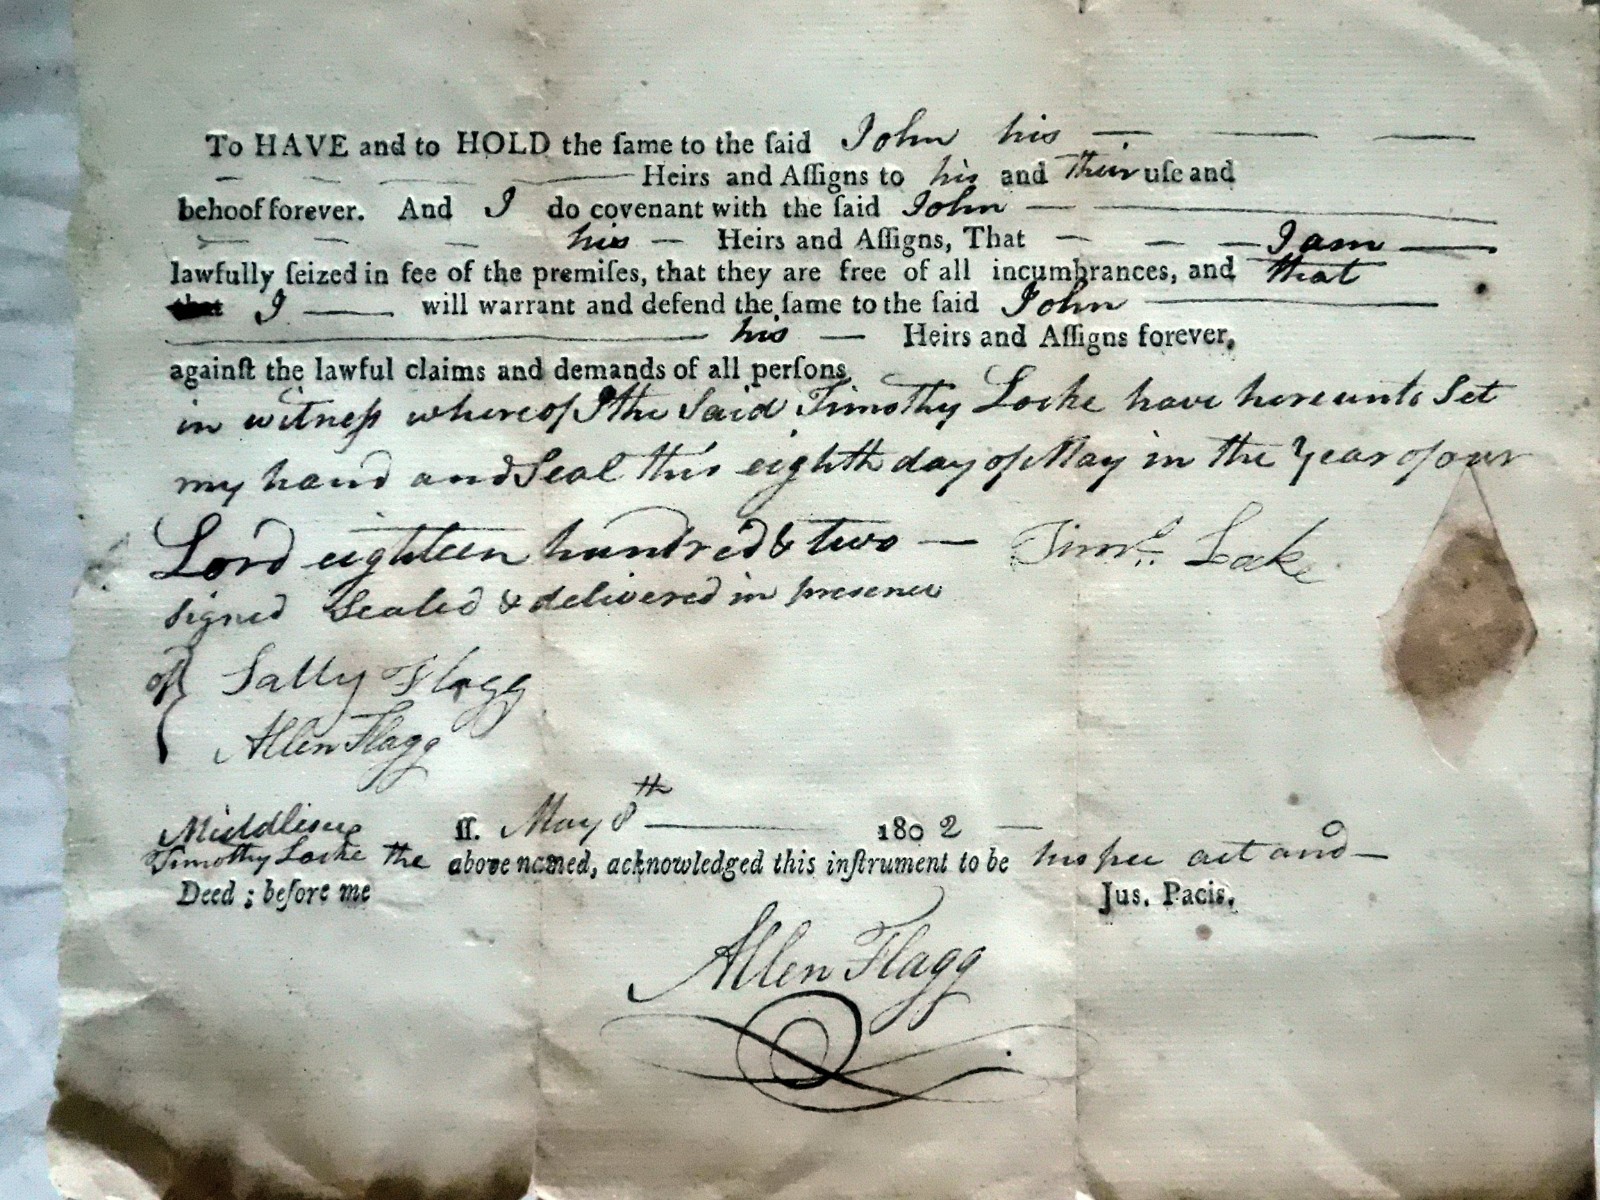 To HAVE and to HOLD the ſame to the ſaid John his
Heirs and Aſſigns to his and their uſe and
behoof forever. And I do covenant with the ſaid John
his Heirs and Aſſigns, That I am
lawfully ſeized in fee of the premiſes, that they are free of all incumbrances, and that
that I will warrant and defend the ſame to the ſaid John
his Heirs and Aſſigns forever,
againſt the lawful claims and demands of all perſons,
in witneſs whereof I the Said Timothy Locke have hereunto Set
my hand and Seal this eighth day of May in the Year of our
Lord eighteen hundred & two — Timo. Locke
signed Sealed & delivered in presence
of Sally Flagg
Allen Flagg
Middlesex ſſ. May 8th 1802
Timothy Locke the above named, acknowledged this inſtrument to be his free act and
Deed ; before me Jus. Pacis.
Allen Flagg